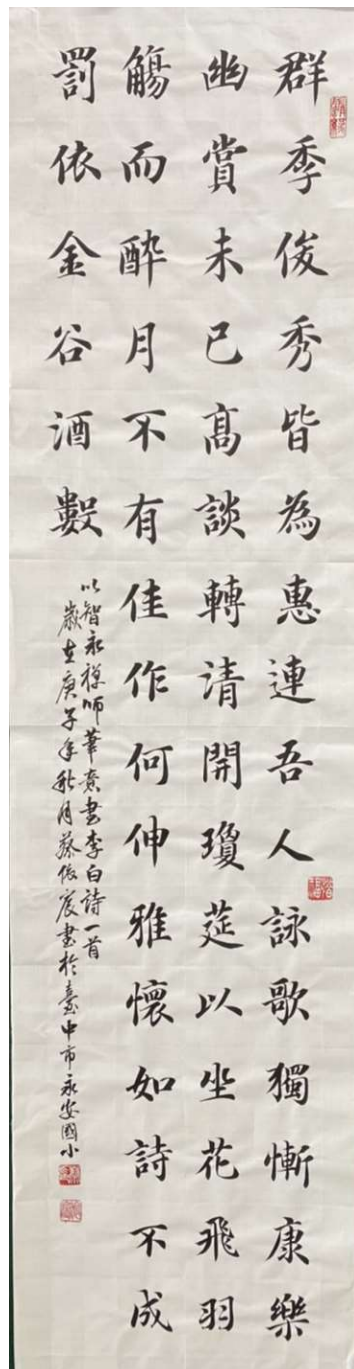 群季俊秀皆為惠連吾人詠歌獨慚康樂
幽賞未已高談轉請開瓊筵以坐花飛羽
觴而醉月不有佳作何伸雅懷如詩不成
罰依金谷酒數
以智永禪師筆意書李白詩一首
歲在庚子年秋月蔡依宸書於臺中市永安國小